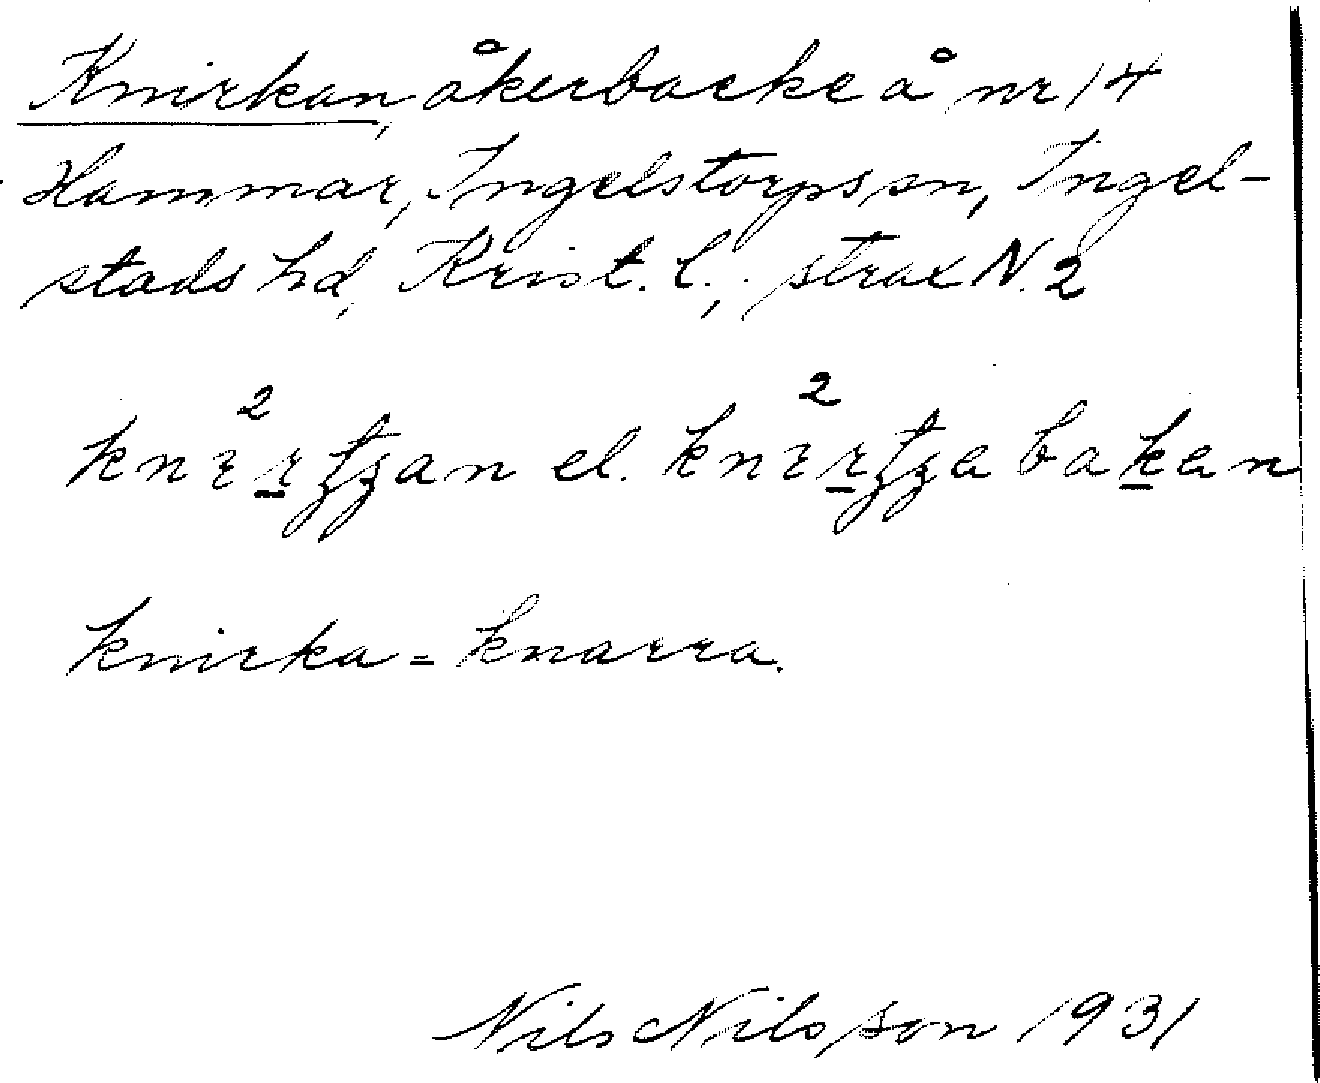 Knirkan, åkerbacke å nr 14
Hammar, Ingelstorps sn, Ingel-
stads hd, Krist. l., strax N. 2
el.
knirka = knarra.
Nils Nilsson 1931